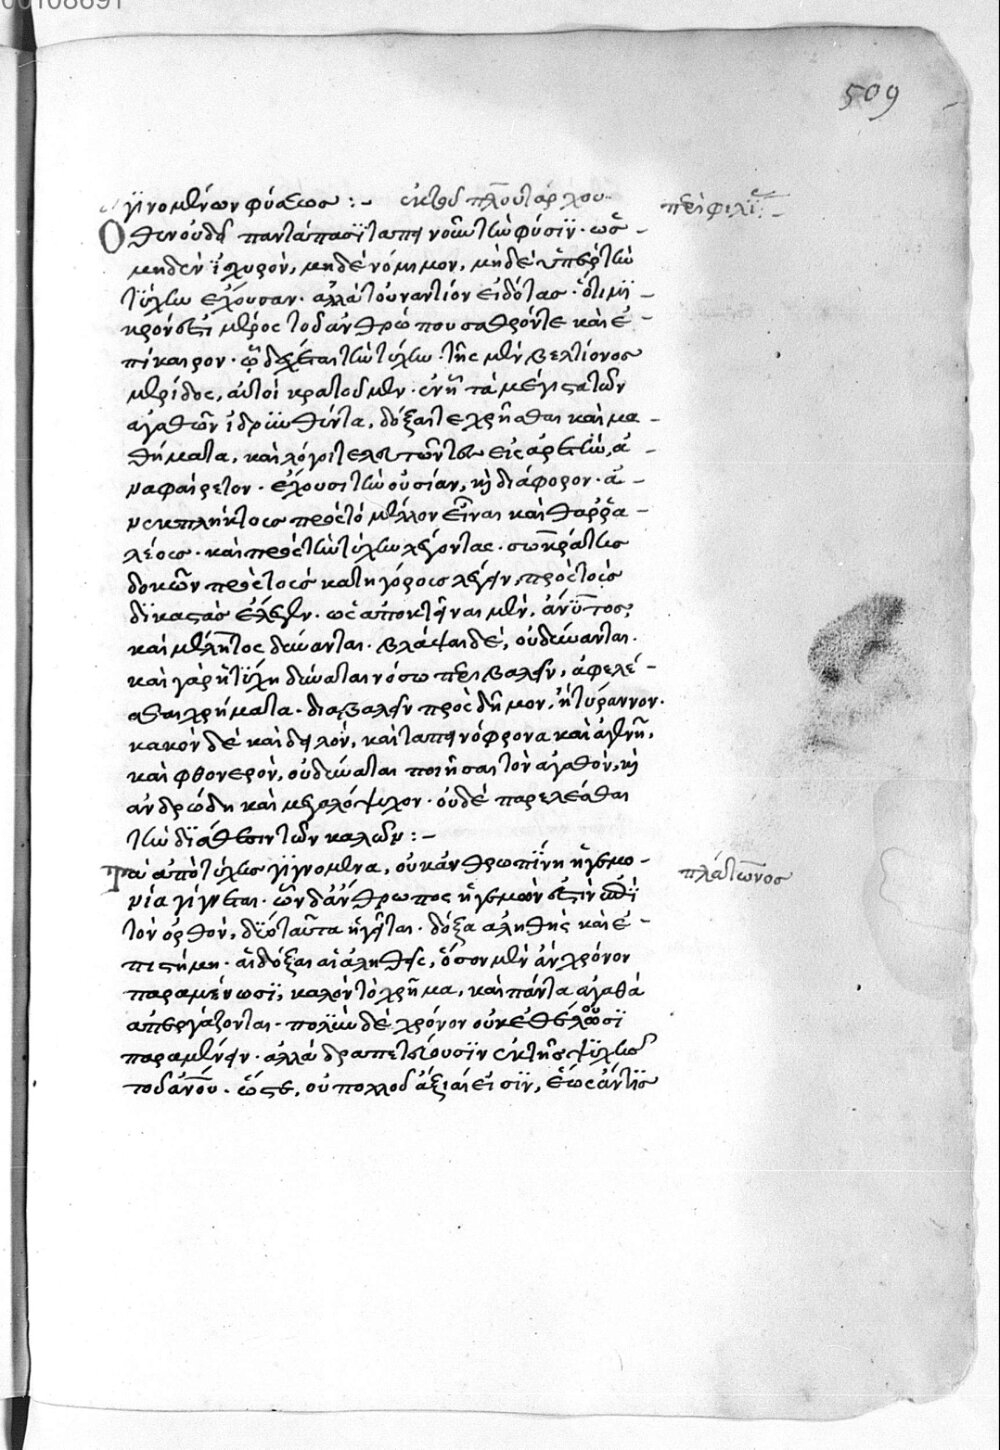 00108691
509
γινομένων φύσεως :- ἐκ τοῦ πλουτάρχου
περὶ φιλί :-
Ὅθεν οὐ δεῖ παντάπασι ταπεινοῦν τὴν φύσιν · ὡς
μηδὲν ἰσχυρόν, μηδὲ νόμιμον, μηδὲ ὑπὲρ τὴν
τύχην ἔχουσαν · ἀλλὰ τοὐναντίον εἰδότας · ὅτι μι
κρόν ἐστι μέρος τοῦ ἀνθρώπου σαθρόν τε καὶ ἐ
πίκαιρον · ᾧ δέχεται τὴν τύχην · τῆς μὲν βελτίονος
μερίδος, αὐτοὶ κρατοῦμεν · ἐν ᾗ τὰ μέγιστα τῶν
ἀγαθῶν ἱδρυνθέντα, δόξαι τε χρησθαι καὶ μα
θήματα, καὶ λόγοι τελευτῶντες εἰς ἀρετὴν, ἀ
ναφαίρετον · ἔχουσι τὴν οὐσίαν, καὶ διάφορον · ἀ
νεκπλήκτοις πρὸς τὸ μέλλον εἶναι καὶ θαρρα
λέοις · καὶ πρὸς τὴν τύχην λέγοντας · σωκράτης
δοκῶν πρὸς τοὺς κατηγόροις λέγειν, πρὸς τοὺς
δικαστὰς ἔλεγεν · ὡς ἀποκτεῖναι μὲν, ἄνυτος,
καὶ μέλητος δύνανται · βλάψαι δέ, οὐ δύνανται ·
καὶ γὰρ ἡ τύχη δύναται νόσω περιβαλεῖν, ἀφελέ
σθαι χρήματα · διαβαλεῖν πρὸς δῆμον, ἢ τύραννον ·
κακὸν δὲ καὶ δειλόν, καὶ ταπεινόφρονα καὶ ἀγενῆ,
καὶ φθονερὸν, οὐ δύναται ποιῆσαι τὸν ἀγαθὸν, καὶ
ἀνδρώδη καὶ μεγαλόψυχον · οὐδὲ παρελέσθαι
τὴν διάθεσιν τῶν καλῶν :-
πλάτωνος
Τὰ ἀπὸ τύχης γιγνόμενα, οὐκ ἀνθρωπίνῃ ἡγεμο
νία γίγνεται · ὧν δ' ἄνθρωπος ἡγεμών ἐστιν ἐπὶ
τὸν ὀρθὸν, δύο ταῦτα ἡγεῖται · δόξα ἀληθὴς καὶ ἐ
πιστήμη · αἱ δόξαι αἱ ἀληθεῖς, ὅσον μὲν ἂν χρόνον
παραμένωσι, καλὸν τὸ χρῆμα, καὶ πάντα ἀγαθὰ
ἀπεργάζονται · πολὺν δὲ χρόνον οὐκ ἐθέλουσι
παραμένειν · ἀλλὰ δραπετεύουσιν ἐκ τῆς ψυχῆς
τοῦ ἀνου · ὥστε, οὐ πολλοῦ ἄξιαι εἰσιν, ἕως ἄν τις